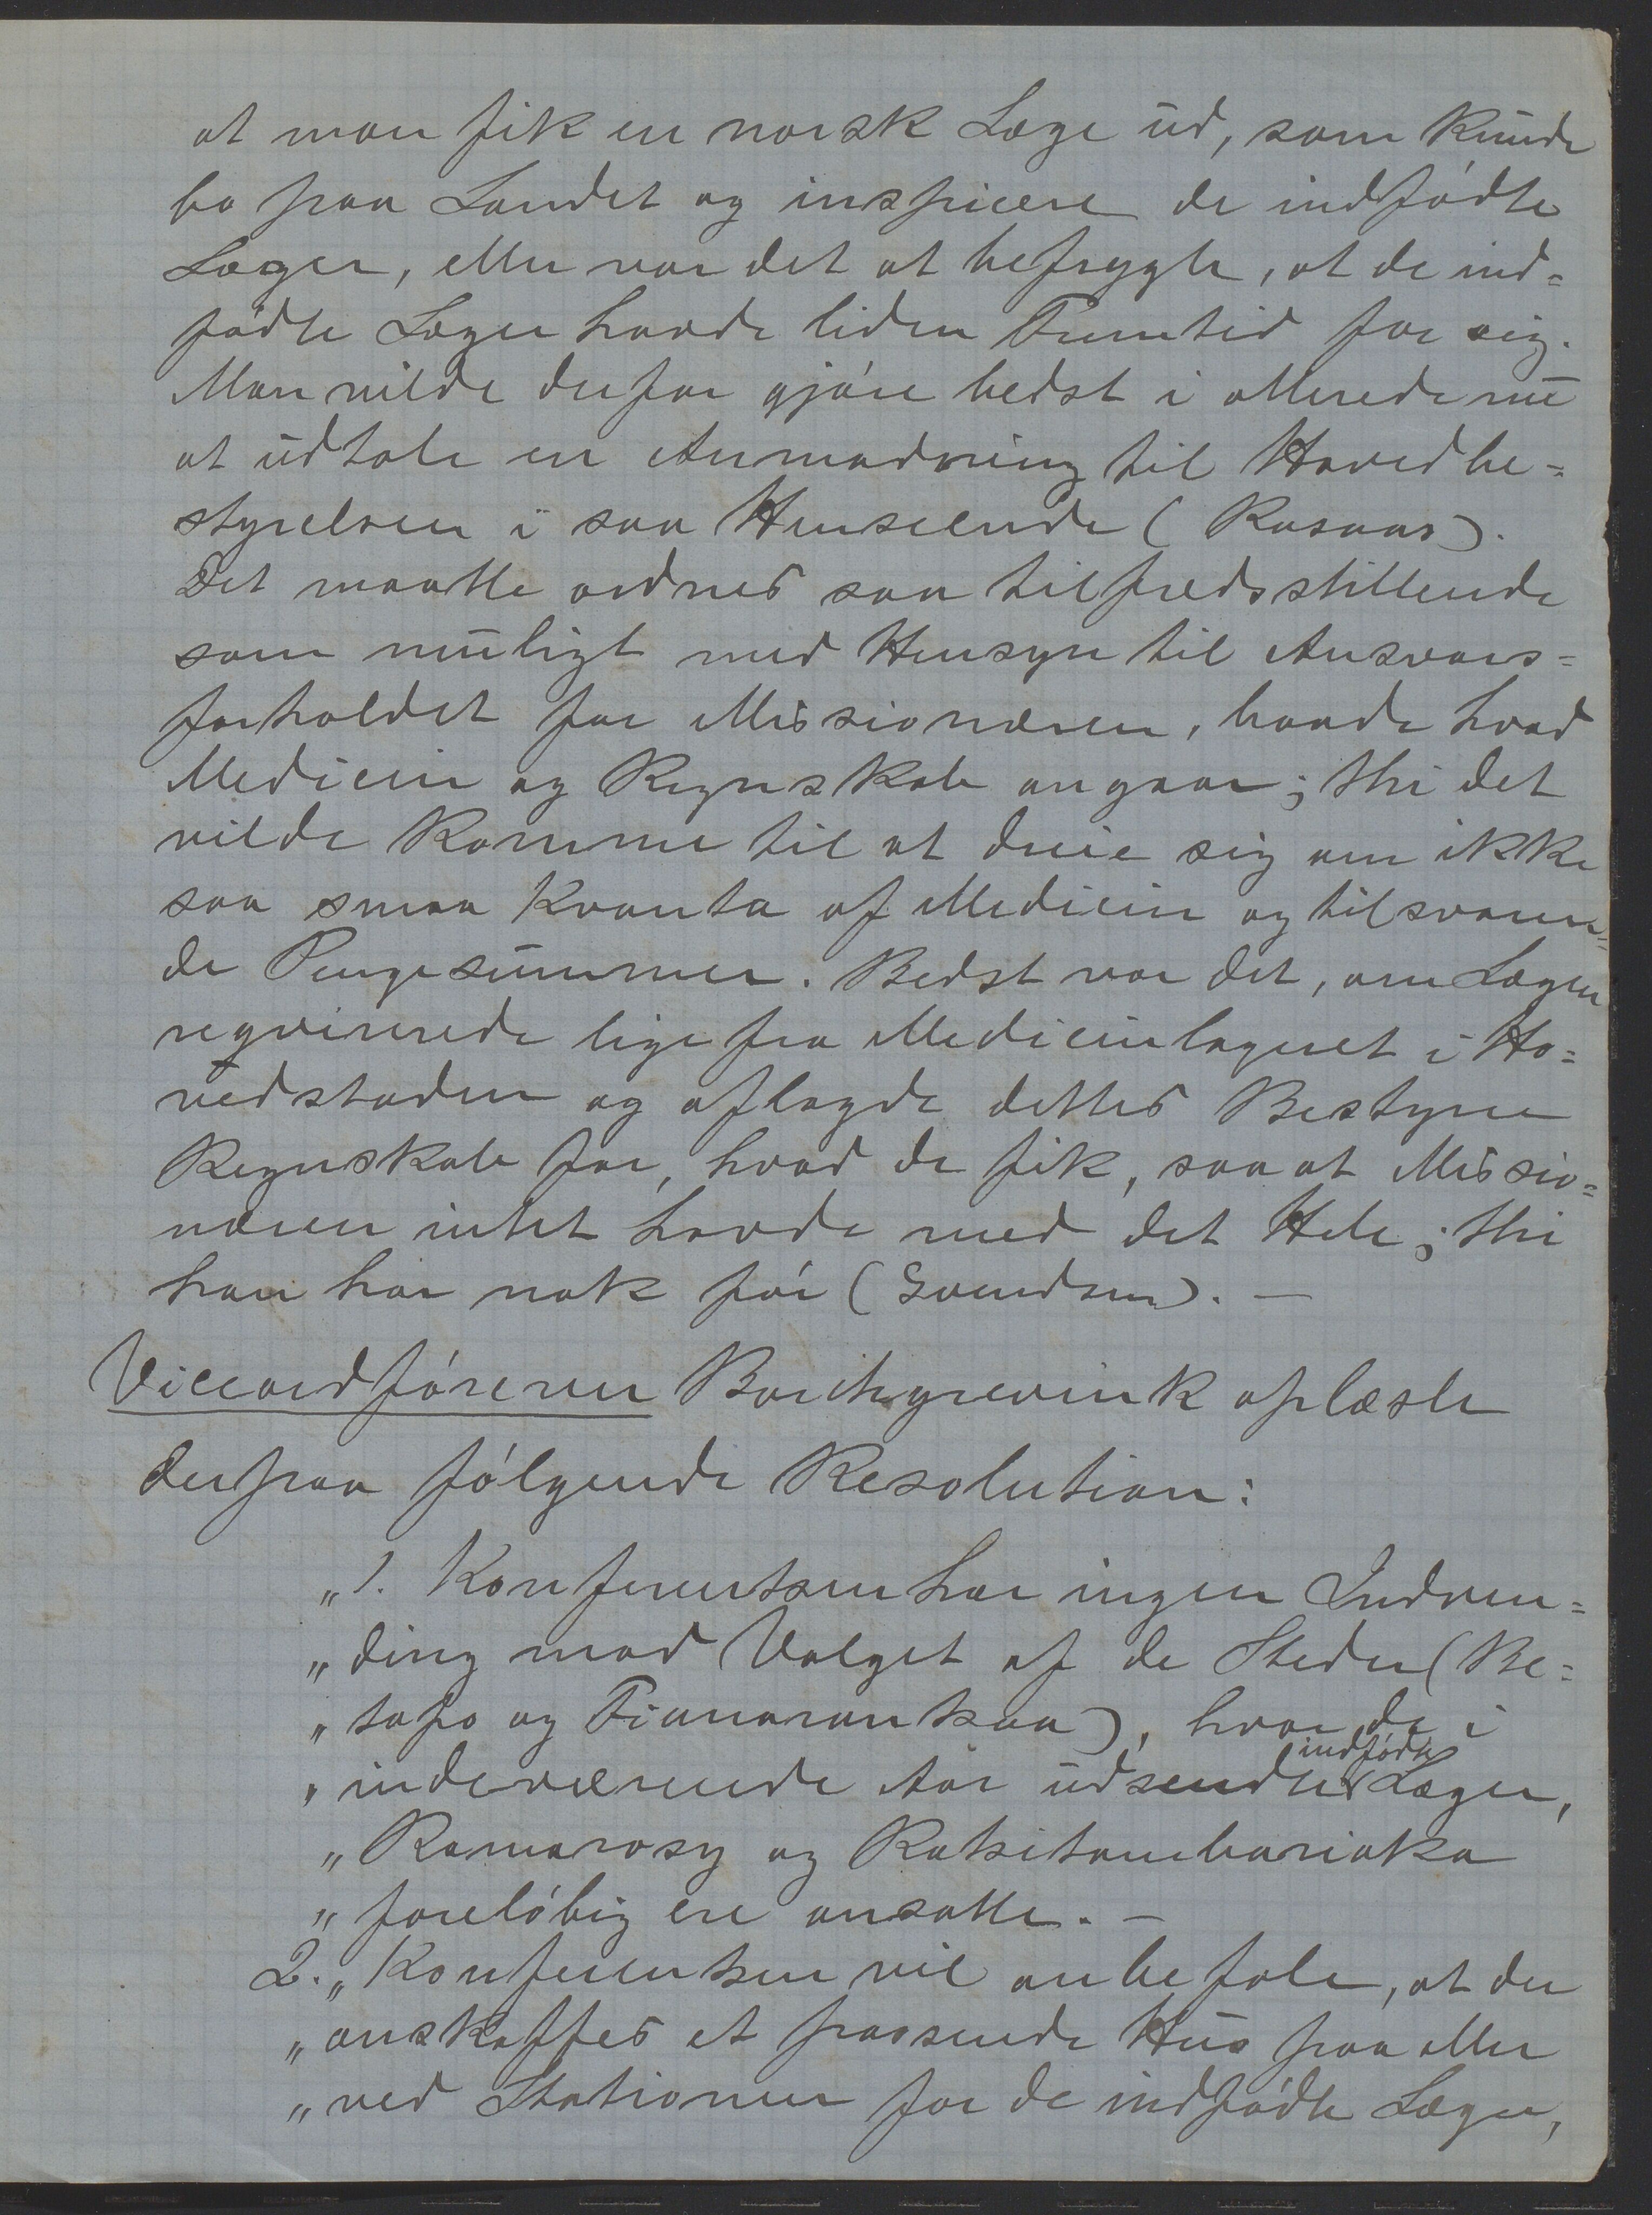 at man fik en norsk Læge ud, som kunde
bo paa Landet og inspicere de indfødte
Læger, eller var det at befrygte, at de ind=
fødte Læger havde liden Fremtid for sig.
Man vilde derfor gjøre bedst i allerede nu
at udtale en Anmodning til Hovedbe=
styrelsen i saa Henseende (Rosaas).
Det maatte ordnes saa tilfredsstillende
som muligt med Hensyn til Ansvars=
forholdet for Missionæren, baade hvad
Medicin og Regnskab angaar; thi det
vilde komme til at dreie sig om ikke
saa smaa Kvanta af Medicin og tilsvaren=
de Pengesummer. Bedst var det, om Lægen
reqvirerede lige fra Medicinlageret i Ho=
vedstaden og aflagde dettes Bestyrer
Regnskab for, hvad de fik, saa at Missio=
næren intet havde med det Hele; thi
han har nok før (Svendsen). —
Viceordføreren Borchgrevink oplæste
derpaa følgende Resolution:
„1. Konferentsen har ingen Indven=
„ding mod Valget af de Steder (Be=
„tafo og Fianarantsoa), hvor de i
„indeværende Aar udsendte indfødte Læger,
„Ramarosy og Rakitambariaka
„foreløbig ere ansatte. —
2. „Konferentsen vil anbefale, at der
„anskaffes et passende Hus paa eller
„ved Stationer for de indfødte Læger,